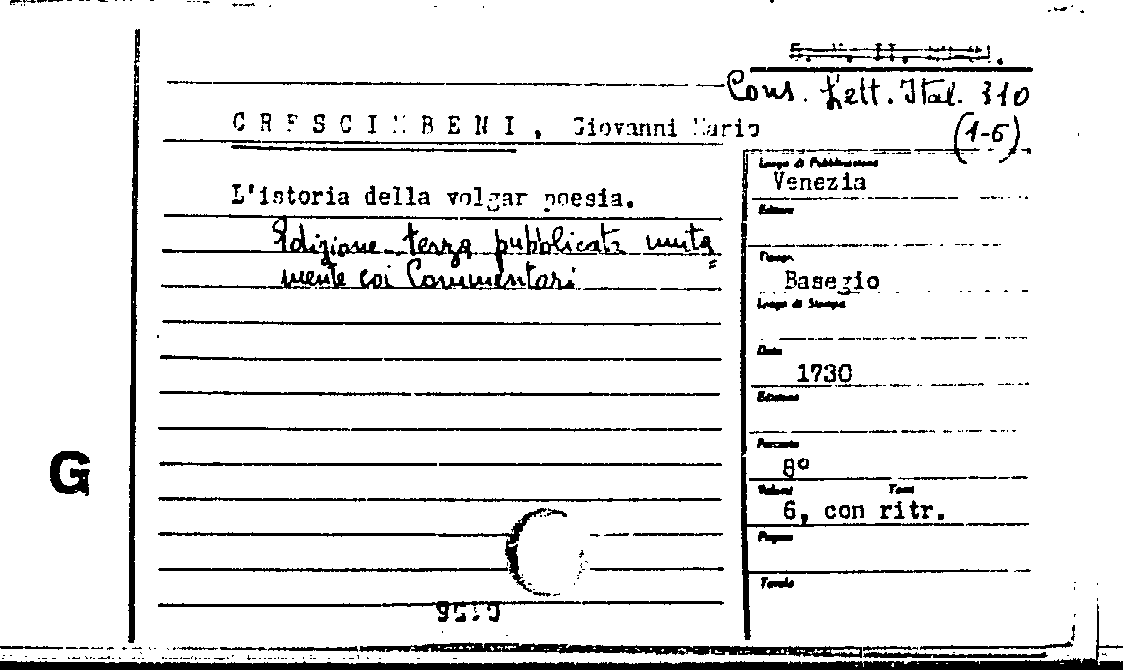 Cons. Lett. Ital. 310
(1-6)
CRESCIMBENI, Giovanni Mario
L'istoria della volgar poesia.
Edizione terza pubblicata unita=
mente coi Commentari
Luogo di Pubblicazione
Venezia
Editore
Tipogr.
Basegio
Luogo di Stampa
Data
1730
Edizione
Formato
8º
Volumi Tomi
6, con ritr.
Pagine
Tavole
G